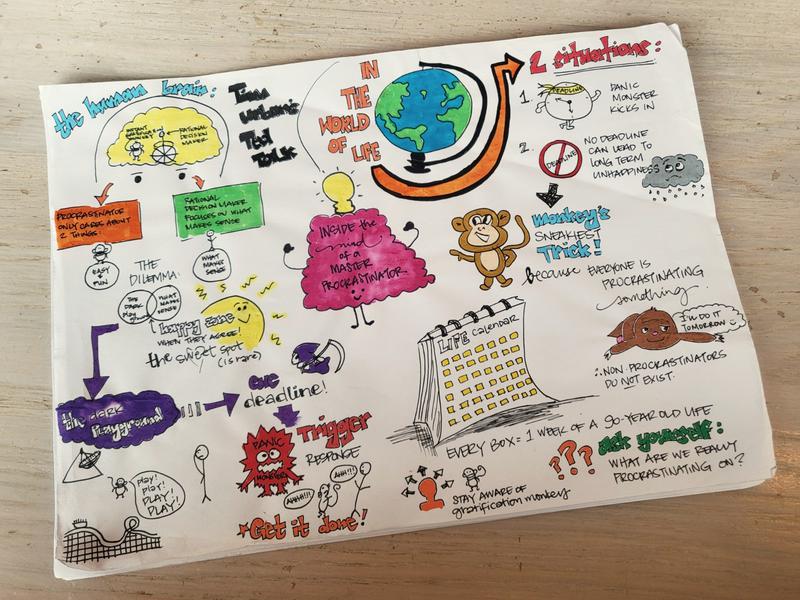 the human brain:
INSTANT
GRATIFICATION
MONKEY
RATIONAL
DECISION
MAKER
PROCRASTINATOR
ONLY CARES ABOUT
2 THINGS:
RATIONAL
DECISION MAKER
FOCUSES ON WHAT
MAKES SENSE
EASY
+
FUN
WHAT
MAKES
SENSE
THE
DILEMMA:
THE
DARK
Play
WHAT
MAKES
SENSE
happy zone
WHEN THEY AGREE!
the sweet spot
(is rare)
the DARK
Playground
play!
play!
PLAY!
PLAY!
Tim
Urban's
Ted
Talk
INSIDE the
mind
of a
MASTER
PROCRASTINATOR
cue
deadline!
PANIC
MONSTER
Trigger
RESPONSE
AHHH!!!
AHH!!!
*Get it done!
IN
THE
WORLD
OF LIFE
2 situations:
1.
DEADLINE
PANIC
MONSTER
KICKS IN
2.
DEADLINE
NO DEADLINE
CAN LEAD TO
LONG TERM
UNHAPPINESS
monkey's
SNEAKIEST
Trick!
because EVERYONE IS
PROCRASTINATING
something
I'LL DO IT
TOMORROW
∴ NON-PROCRASTINATORS
DO NOT EXIST.
LIFE calendar
EVERY BOX = 1 WEEK OF A 90-YEAR OLD LIFE
STAY AWARE OF
gratification monkey
???
Ask yourself:
WHAT ARE WE REALLY
PROCRASTINATING ON?